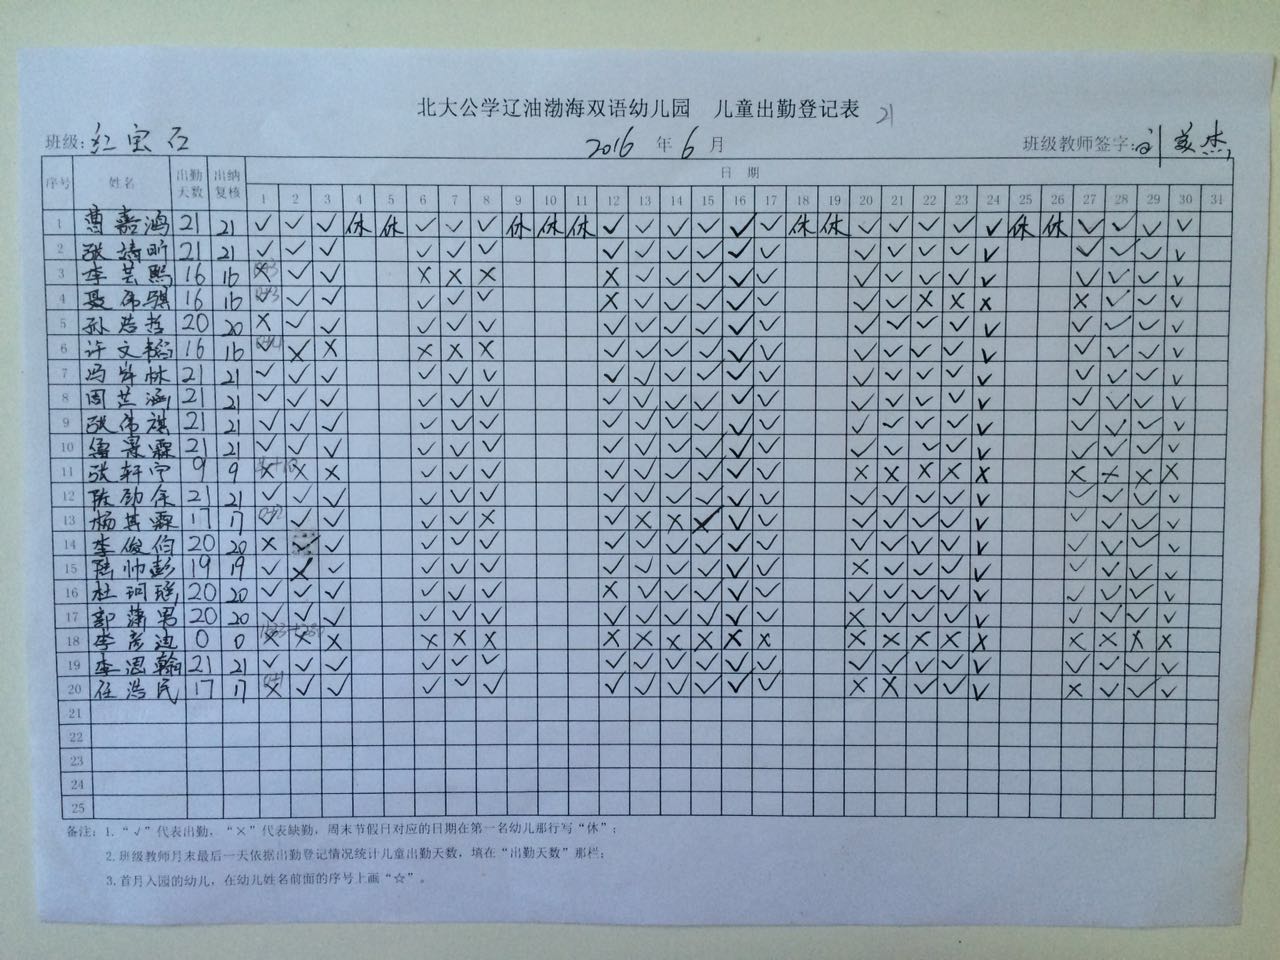 北大公学辽油渤海双语幼儿园 儿童出勤登记表 21
班级: 红宝石 2016 年 6 月 班级教师签字: 刘美杰
序号 姓名 出勤天数 出纳复核 日期
1 2 3 4 5 6 7 8 9 10 11 12 13 14 15 16 17 18 19 20 21 22 23 24 25 26 27 28 29 30 31
1 曹嘉鸿 21 21 ✓ ✓ ✓ 休 休 ✓ ✓ ✓ 休 休 休 ✓ ✓ ✓ ✓ ✓ ✓ 休 休 ✓ ✓ ✓ ✓ ✓ 休 休 ✓ ✓ ✓ ✓
2 张 昕 21 21 ✓ ✓ ✓ ✓ ✓ ✓ ✓ ✓ ✓ ✓ ✓ ✓ ✓ ✓ ✓ ✓ ✓ ✓ ✓ ✓ ✓
3 李芸熙 16 16 × ✓ ✓ × × × × ✓ ✓ ✓ ✓ ✓ ✓ ✓ ✓ ✓ ✓ ✓ ✓ ✓ ✓
4 聂伟骐 16 16 ✓ ✓ ✓ ✓ ✓ ✓ × ✓ ✓ ✓ ✓ ✓ ✓ ✓ × × × × ✓ ✓ ✓
5 孙浩哲 20 20 × ✓ ✓ ✓ ✓ ✓ ✓ ✓ ✓ ✓ ✓ ✓ ✓ ✓ ✓ ✓ ✓ ✓ ✓ ✓ ✓
6 许文韬 16 16 ✓ × × × × × ✓ ✓ ✓ ✓ ✓ ✓ ✓ ✓ ✓ ✓ ✓ ✓ ✓ ✓ ✓
7 冯 林 21 21 ✓ ✓ ✓ ✓ ✓ ✓ ✓ ✓ ✓ ✓ ✓ ✓ ✓ ✓ ✓ ✓ ✓ ✓ ✓ ✓ ✓
8 周芷涵 21 21 ✓ ✓ ✓ ✓ ✓ ✓ ✓ ✓ ✓ ✓ ✓ ✓ ✓ ✓ ✓ ✓ ✓ ✓ ✓ ✓ ✓
9 张伟祺 21 21 ✓ ✓ ✓ ✓ ✓ ✓ ✓ ✓ ✓ ✓ ✓ ✓ ✓ ✓ ✓ ✓ ✓ ✓ ✓ ✓ ✓
10 景霖 21 21 ✓ ✓ ✓ ✓ ✓ ✓ ✓ ✓ ✓ ✓ ✓ ✓ ✓ ✓ ✓ ✓ ✓ ✓ ✓ ✓ ✓
11 张轩宁 9 9 × × × ✓ ✓ ✓ ✓ ✓ ✓ ✓ ✓ ✓ × × × × × × × × ×
12 陈劭余 21 21 ✓ ✓ ✓ ✓ ✓ ✓ ✓ ✓ ✓ ✓ ✓ ✓ ✓ ✓ ✓ ✓ ✓ ✓ ✓ ✓ ✓
13 杨其霖 17 17 ✓ ✓ ✓ ✓ ✓ × ✓ × × ✓ ✓ ✓ ✓ ✓ ✓ ✓ ✓ ✓ ✓ ✓
14 李俊伯 20 20 × ✓ ✓ ✓ ✓ ✓ ✓ ✓ ✓ ✓ ✓ ✓ ✓ ✓ ✓ ✓ ✓ ✓ ✓ ✓ ✓
15 陆帅彭 19 19 ✓ × ✓ ✓ ✓ ✓ ✓ ✓ ✓ ✓ ✓ ✓ × ✓ ✓ ✓ ✓ ✓ ✓ ✓ ✓
16 杜珂瑶 20 20 ✓ ✓ ✓ ✓ ✓ ✓ × ✓ ✓ ✓ ✓ ✓ ✓ ✓ ✓ ✓ ✓ ✓ ✓ ✓ ✓
17 郭蒲男 20 20 ✓ ✓ ✓ ✓ ✓ ✓ ✓ ✓ ✓ ✓ ✓ ✓ × ✓ ✓ ✓ ✓ ✓ ✓ ✓ ✓
18 李彦迪 0 0 × × × × × × × × × × × × × × × × × × × × ×
19 李思翰 21 21 ✓ ✓ ✓ ✓ ✓ ✓ ✓ ✓ ✓ ✓ ✓ ✓ ✓ ✓ ✓ ✓ ✓ ✓ ✓ ✓ ✓
20 任浩民 17 17 × ✓ ✓ ✓ ✓ ✓ ✓ ✓ ✓ ✓ ✓ ✓ × × ✓ ✓ ✓ × ✓ ✓ ✓
21
22
23
24
25
备注: 1. “√”代表出勤, “×”代表缺勤, 周末节假日对应的日期在第一名幼儿那行写“休”;
2. 班级教师月末最后一天依据出勤登记情况统计儿童出勤天数, 填在“出勤天数”那栏;
3. 首月入园的幼儿, 在幼儿姓名前面的序号上画“☆”。